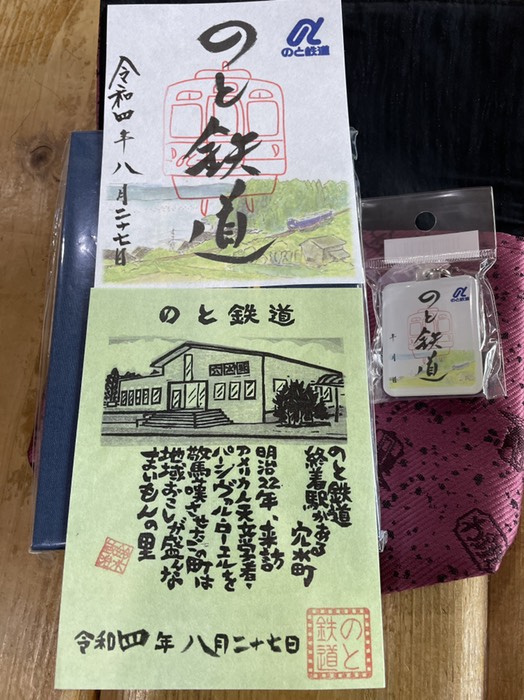 のと鉄道
のと鉄道
令和四年八月二十七日
のと鉄道
のと鉄道
終着駅がある 穴水町
明治22年、来訪
アメリカ人天文学者・
パーシヴァル・ローエルを
驚嘆させたこの町は
地域おこしが盛んな
まいもんの里
令和四年八月二十七日
のと鉄道
のと鉄道
年 月 日